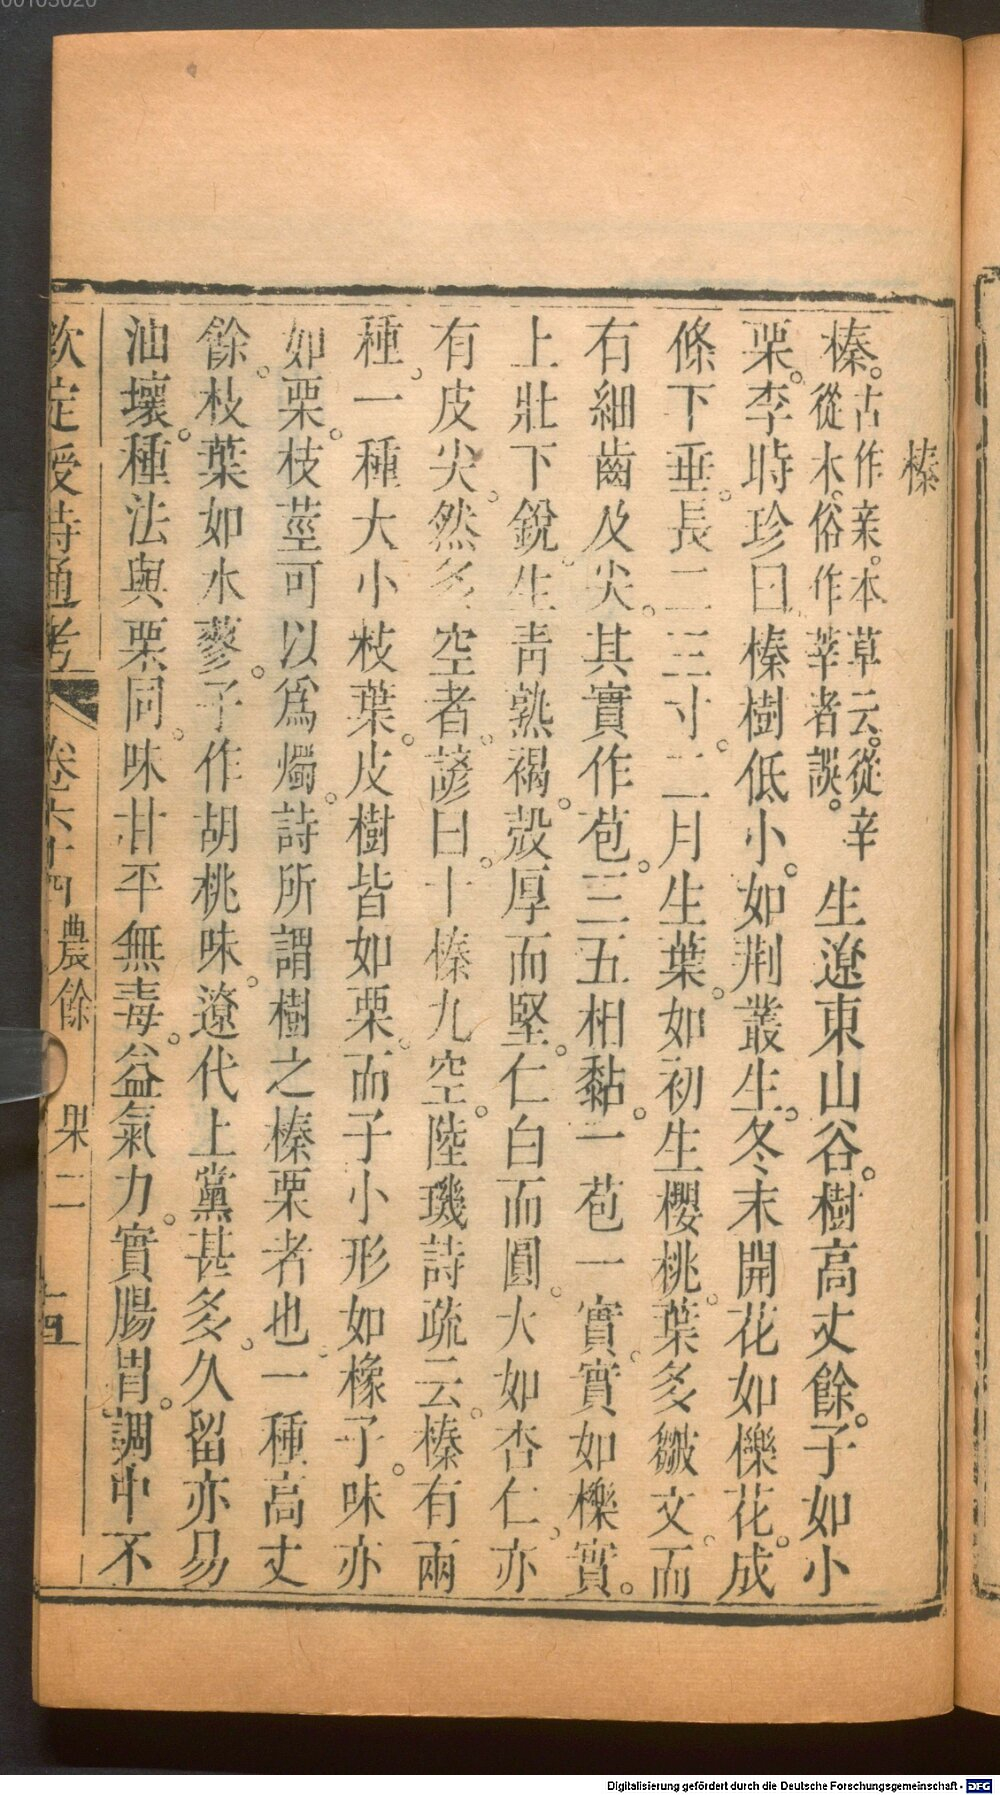 榛
榛。古作亲。本草云。從辛從木。俗作莘者誤。生遼東山谷。樹高丈餘。子如小
栗。李時珍曰。榛樹低小。如荆叢生。冬末開花如櫟花。成
條下垂。長二三寸。二月生葉。如初生櫻桃。葉多皺文。而
有細齒及尖。其實作苞。三五相黏。一苞一實。實如櫟實。
上壯下銳。生青熟褐。殼厚而堅。仁白而圓。大如杏仁。亦
有皮尖。然多空者。諺曰。十榛九空。陸璣詩疏云。榛有兩
種。一種大小枝葉。皮樹皆如栗。而子小形如橡子。味亦
如栗。枝莖可以爲燭。詩所謂樹之榛栗者也。一種高丈
餘。枝葉如水蓼。子作胡桃味。遼代上黨甚多。久留亦易
油壞。種法與栗同。味甘平無毒。益氣力。實腸胃。調中不
欽定授時通考 卷六十四 農餘 果二 十四
Digitalisierung gefördert durch die Deutsche Forschungsgemeinschaft - DFG